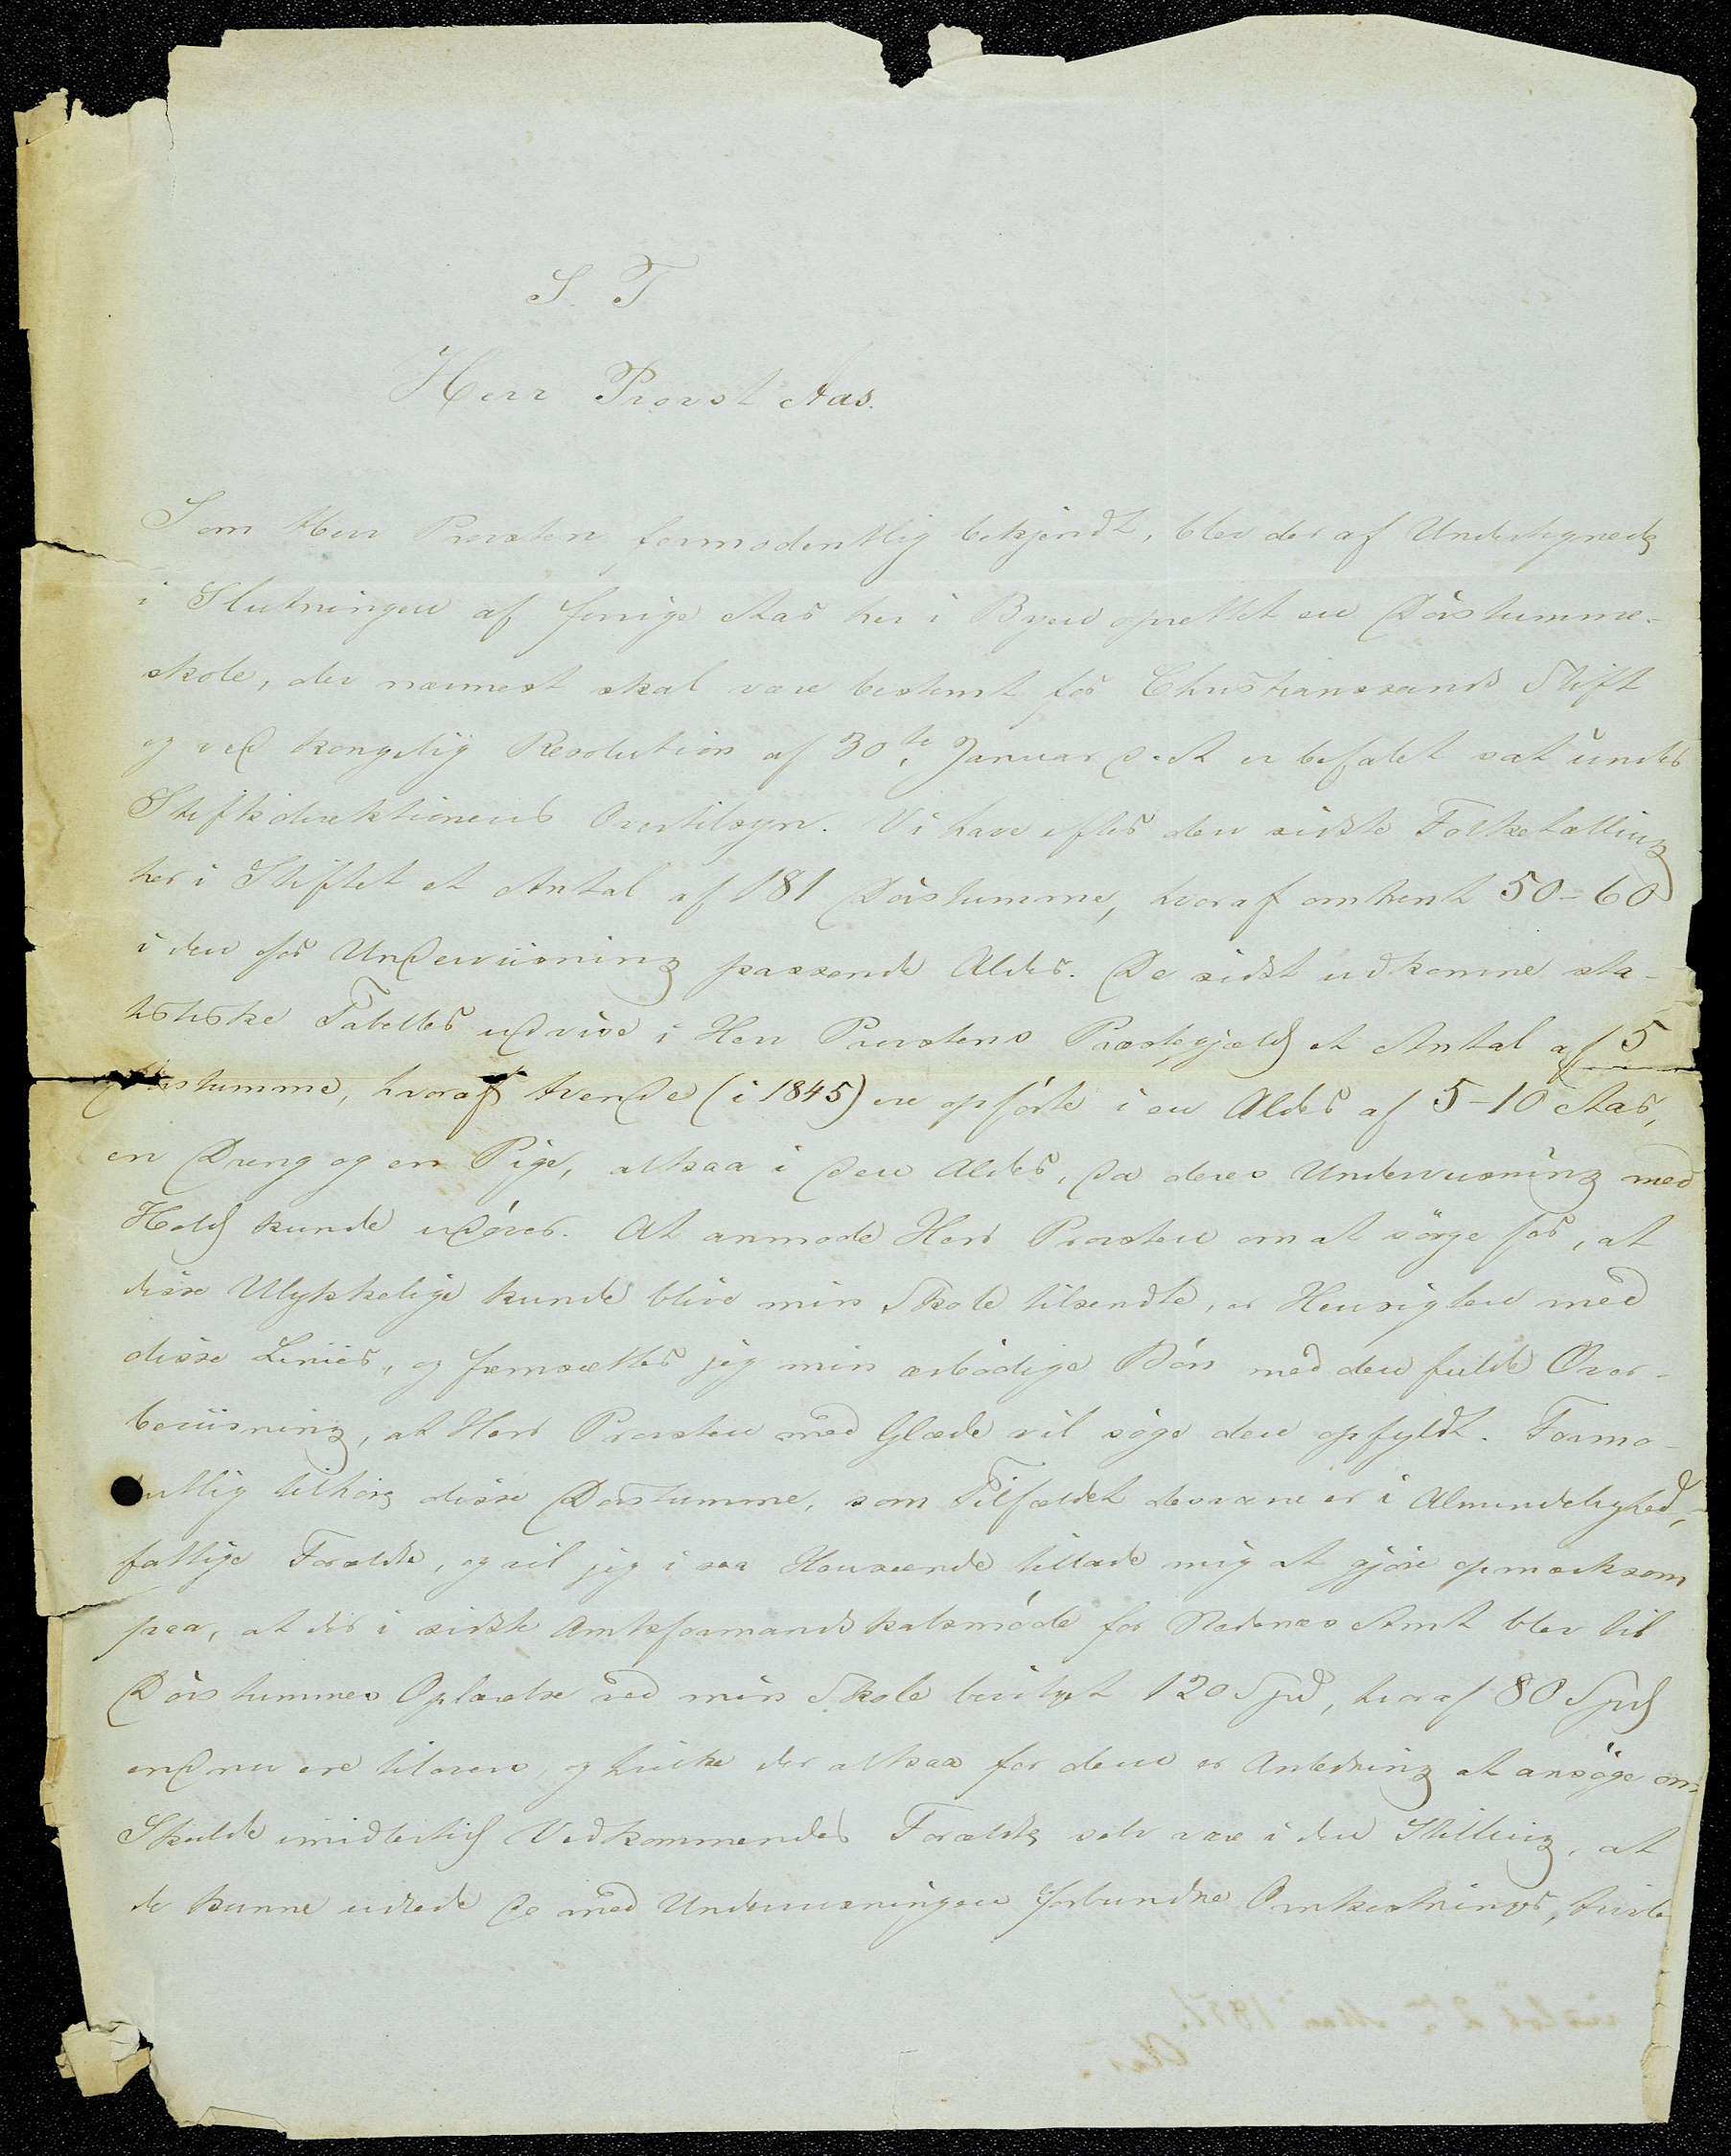 S. T
Herr Provst Aas.
Som Herr Provsten formodentlig bekjendt, blev der af Undertegnede
i Slutningen af forrige Aar her i Byen oprettet en Døvstumme-
skole, der nærmest skal være bestemt for Christianssands Stift
og ved kongelig Resolution af 30te Januar d. A. er befalet sat under
Stiftsdirektionens Overtilsyn. Vi have efter den sidste Folketælling
her i Stiftet et Antal af 181 Døvstumme, hvoraf omtrent 50-60
i den for Underviisning passende Alder. De sidst udkomne sta-
tistiske Tabeller udvise i Herr Provstens Præstegjæld et Antal af 5
Døvstumme, hvoraf tvende (i 1845) ere opførte i en Alder af 5-10 Aar,
en Dreng og en Pige, altsaa i den Alder, da deres Underviisning med
Held kunde udøves. At anmode Herr Provsten om at sørge for, at
disse Ulykkelige kunde blive min Skole tilsendte, er Hensigten med
disse Linier, og fremsætter jeg min ærbødige Bøn med den fulde Over-
beviisning, at Herr Provsten med Glæde vil søge den opfyldt. Formo-
entlig tilhøre disse Døvstumme, som Tilfældet desværre er i Almindelighed,
fattige Forældre, og vil jeg i saa Henseende tillade mig at gjøre opmærksom
paa, at der i sidste Amtsformandskabsmøde for Nedenæs Amt blev til
Døvstummes Oplærelse ved min Skole bevilget 120 Spd, hvoraf 80 Spd
endnu ere tilovers, og hvilke der altsaa for dem er Anledning at ansøge om
Skulde imidlertid Vedkommendes Forældre selv være i den Stilling, at
de kunne udrede de med Underviisningen forbundne Omkostninger,